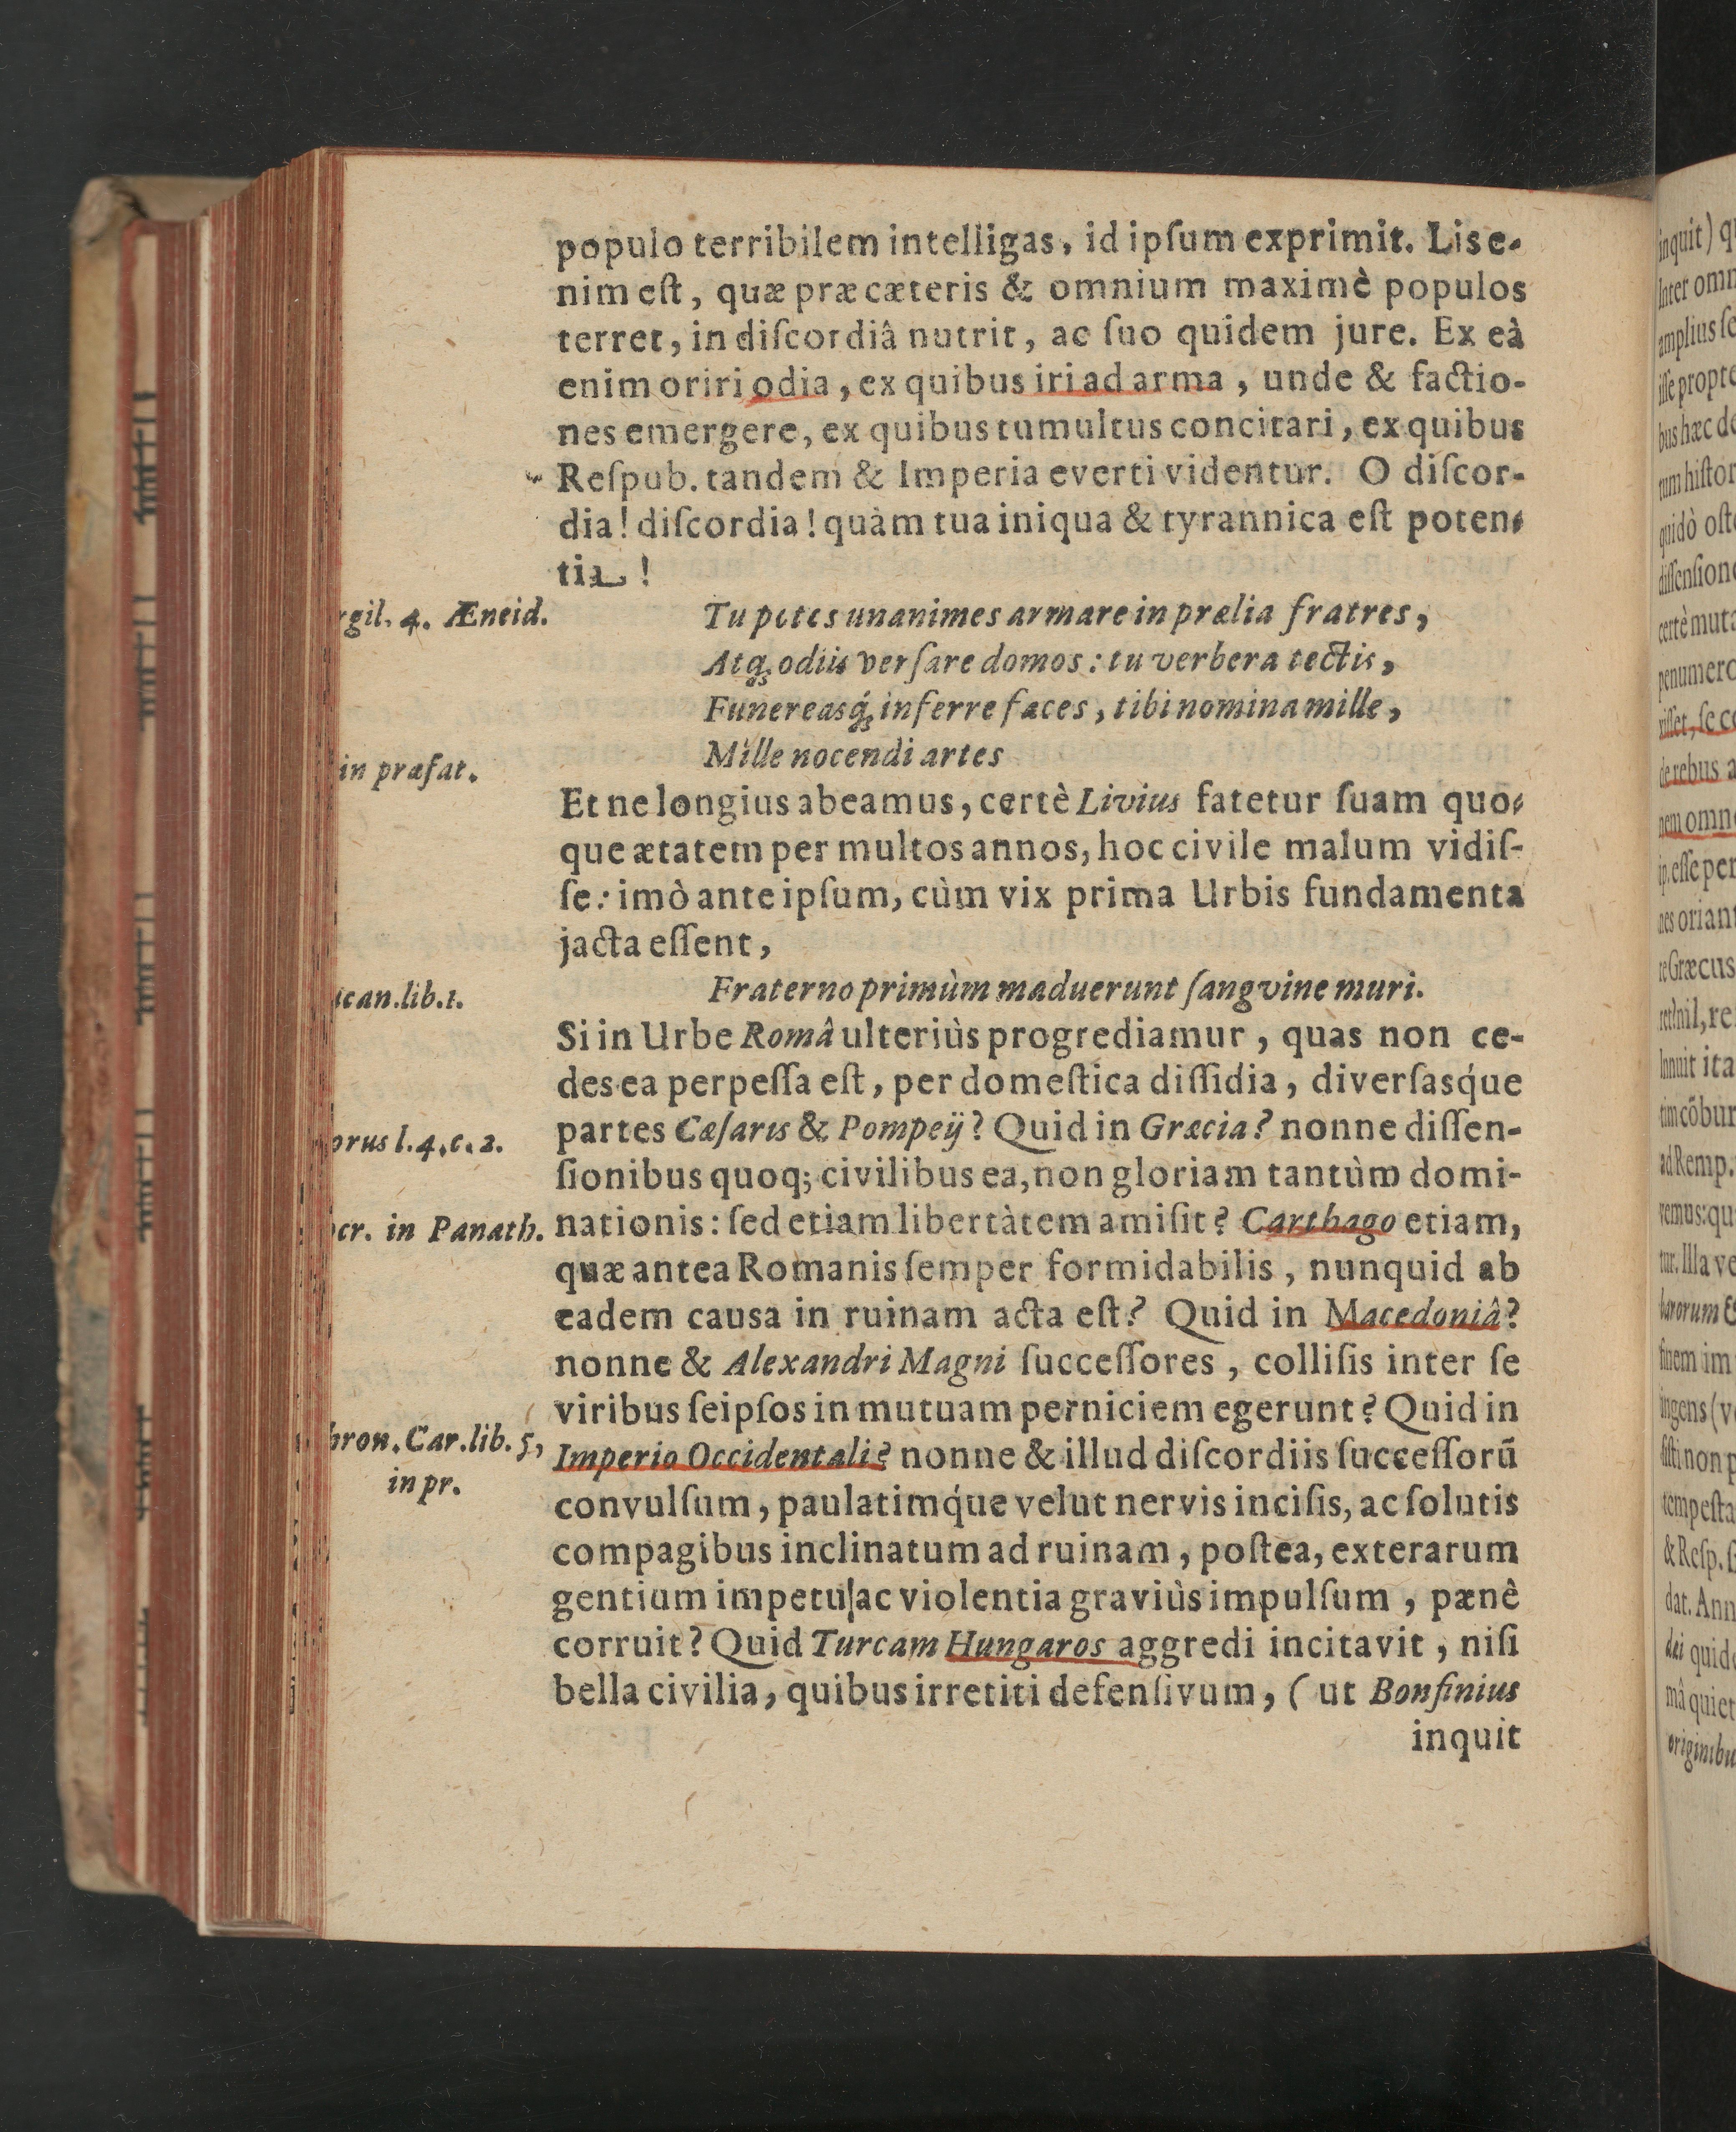 populo terribilem intelligas, id ipſum exprimit. Lis e-
nim eſt, quæ præ cæteris & omnium maximè populos
terret, in diſcordiâ nutrit, ac ſuo quidem jure. Ex eà
enim oriri odia, ex quibus iri ad arma, unde & factio-
nes emergere, ex quibus tumultus concitari, ex quibus
Reſpub. tandem & Imperia everti videntur. O diſcor-
dia! diſcordia! quàm tua iniqua & tyrannica eſt poten-
tia!
rgil. 4. Æneid.
Tu potes unanimes armare in prælia fratres,
Atq; odiis verſare domos: tu verbera tectis,
Funereasq́; inferre faces, tibi nomina mille,
Mille nocendi artes
in præfat.
Et ne longius abeamus, certè Livius fatetur ſuam quo-
que ætatem per multos annos, hoc civile malum vidiſ-
ſe: imò ante ipſum, cùm vix prima Urbis fundamenta
jacta eſſent,
ican. lib. 1.
Fraterno primùm maduerunt ſangvine muri.
Si in Urbe Româ ulteriùs progrediamur, quas non ce-
des ea perpeſſa eſt, per domeſtica diſſidia, diverſasq́ue
orus l. 4. c. 2.
partes Cæſaris & Pompeij? Quid in Græcia? nonne diſſen-
ſionibus quoq; civilibus ea, non gloriam tantùm domi-
ocr. in Panath.
nationis: ſed etiam libertàtem amiſit? Carthago etiam,
quæ antea Romanis ſemper formidabilis, nunquid ab
eadem causa in ruinam acta eſt? Quid in Macedoniâ?
nonne & Alexandri Magni ſucceſſores, colliſis inter ſe
viribus ſeipſos in mutuam perniciem egerunt? Quid in
hron. Car. lib. 5,
in pr.
Imperio Occidentali? nonne & illud diſcordiis ſucceſſorũ
convulſum, paulatimq́ue velut nervis inciſis, ac ſolutis
compagibus inclinatum ad ruinam, poſtea, exterarum
gentium impetu ac violentia graviùs impulſum, pænê
corruit? Quid Turcam Hungaros aggredi incitavit, niſi
bella civilia, quibus irretiti defenſivum, (ut Bonfinius
inquit
inquit)